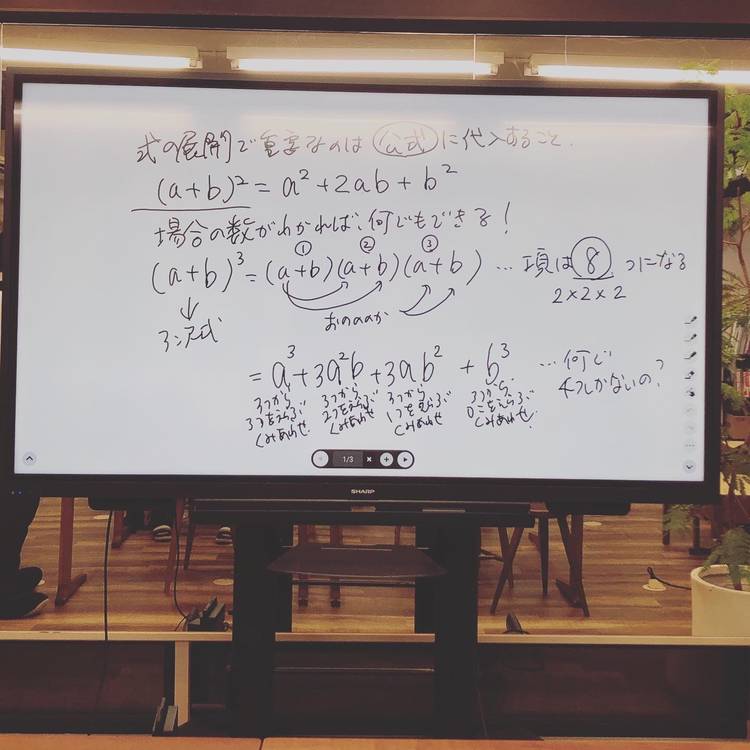 式の展開で重要なのは公式に代入すること.
(a+b)² = a² + 2ab + b²
場合の数がわかれば、何でもできる!
① ② ③
(a+b)³ = (a+b)(a+b)(a+b) … 項は 8 つになる
2×2×2
3次式
= a³ + 3a²b + 3ab² + b³ … 何で
4つしかないの?
3つから 3つをえらぶ くみあわせ
3つから 2つをえらぶ くみあわせ
3つから 1つをえらぶ くみあわせ
3つから 0こをえらぶ くみあわせ
1/3
SHARP